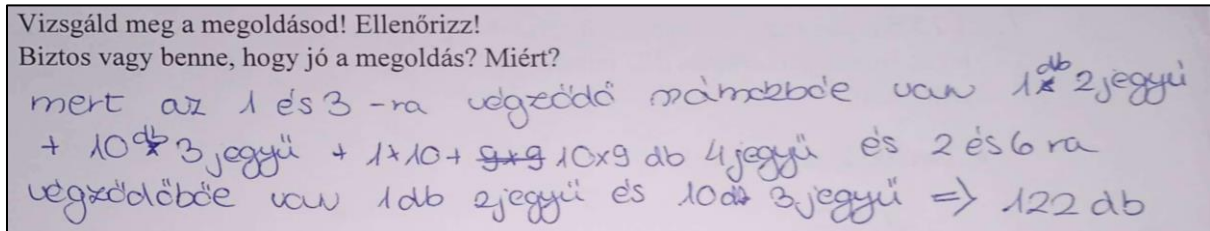 Vizsgáld meg a megoldásod! Ellenőrizz!
Biztos vagy benne, hogy jó a megoldás? Miért?
mert az 1 és 3 -ra végződő számokból van 1 db 2 jegyű
+ 10 db 3 jegyű + 1+10+ 9x9 10x9 db 4 jegyű és 2 és 6 ra
végződőből van 1 db 2 jegyű és 10 db 3 jegyű => 122 db